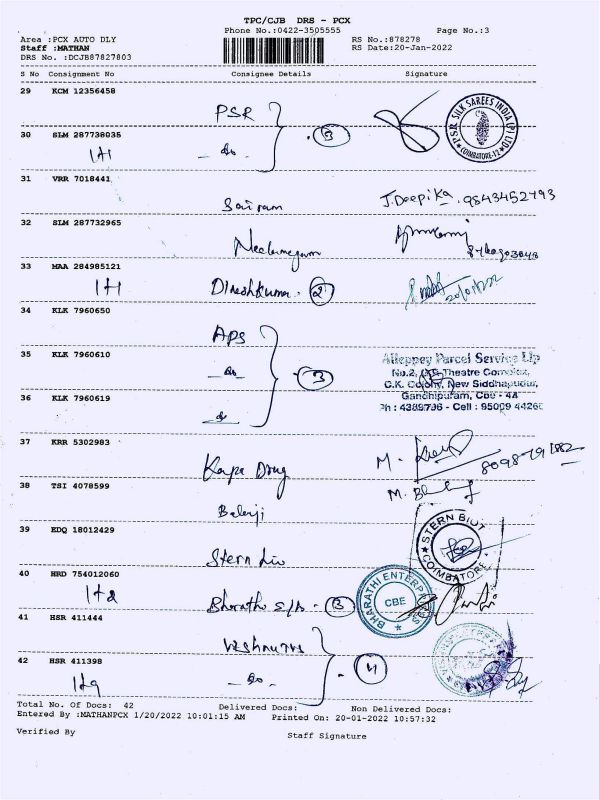 TPC/CJB DRS - PCX
Phone No.:0422-3505555 Page No.:3
Area :PCX AUTO DLY RS No.:878278
Staff :MATHAN RS Date:20-Jan-2022
DRS No. :DCJB87827803
S No Consignment No Consignee Details Signature
29 KCM 12356458
PSR 3
P.S.R. SILK SAREES INDIA (P) LTD COIMBATORE-12
30 SLM 287738035
1+1 - do -
31 VRR 7018441
Sairam J.Deepika 9843452793
32 SLM 287732965
Neelamegam
33 MAA 284985121
1+1 Dineshkumar 2 20/01/22
34 KLK 7960650
APS
35 KLK 7960610
- do - 3
Alleppey Parcel Service Llp
No.2, Theatre Complex,
G.K. Colony, New Siddhapudur,
Gandhipuram, Cbe - 44
Ph : 4389796 - Cell : 95009 44260
36 KLK 7960619
- do -
37 KRR 5302983
Kapa Drug M. 8098791882
38 TSI 4078599
Balaji M.
39 EDQ 18012429
Stern
STERN BIOT COIMBATORE
40 HRD 754012060
1+2 Bharathi 3
BHARATHI ENTERPRISES CBE
41 HSR 411444
Vishnu
42 HSR 411398
1+9 - do - 11
Total No. Of Docs: 42 Delivered Docs: Non Delivered Docs:
Entered By :MATHANPCX 1/20/2022 10:01:15 AM Printed On: 20-01-2022 10:57:32
Verified By Staff Signature